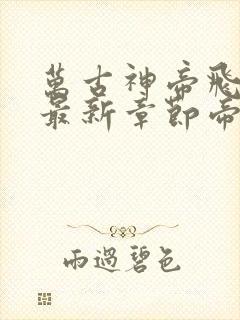 萬古神帝飛
最新章節帝
雨過碧色